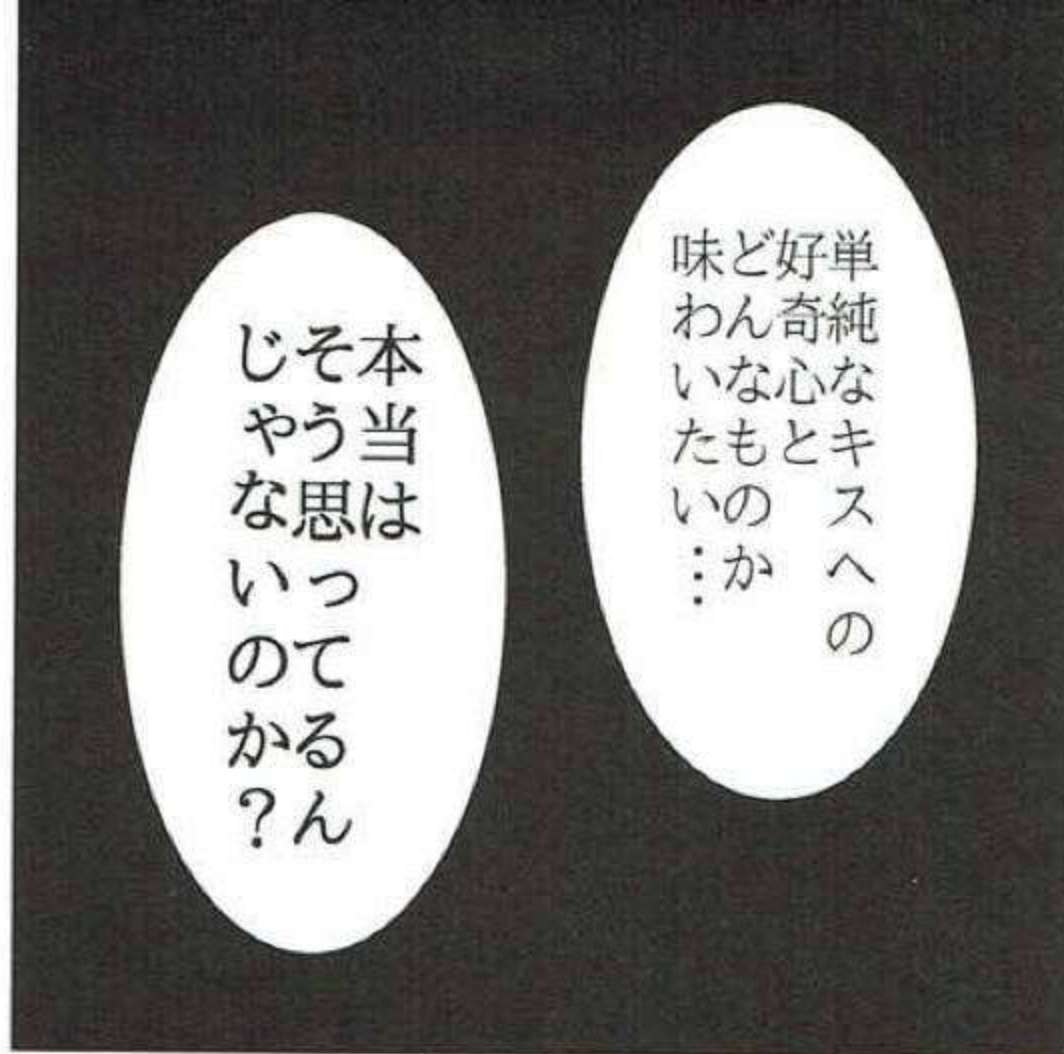 単純なキスへの
好奇心と
どんなものか
味わいたい…
本当は
そう思ってるん
じゃないのか？